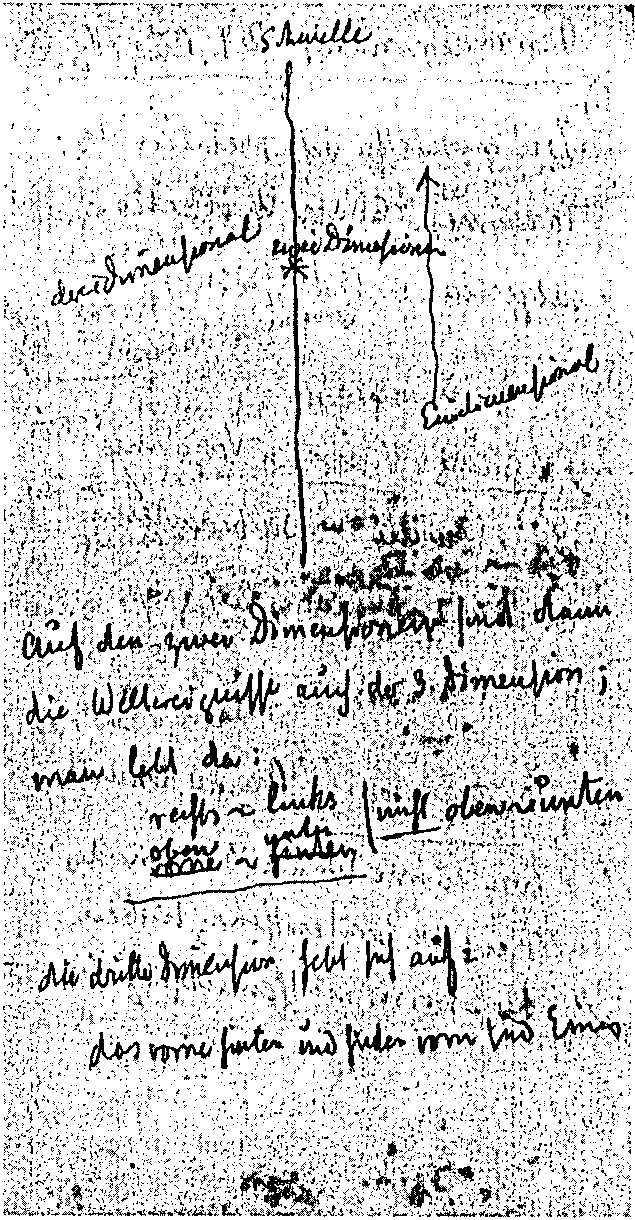 Schwelle
dreidimensional
zwei Dimension
Eindimensional
Auf den zwei Dimensionen sind dann
die Weltereignisse auch der 3. Dimension;
man lebt da:
rechts ~ links | nicht oben und unten
oben unten
vorne ~ hinten
die dritte Dimension hebt sich auf:
das vorne hinten und hinten vorn sind Eines